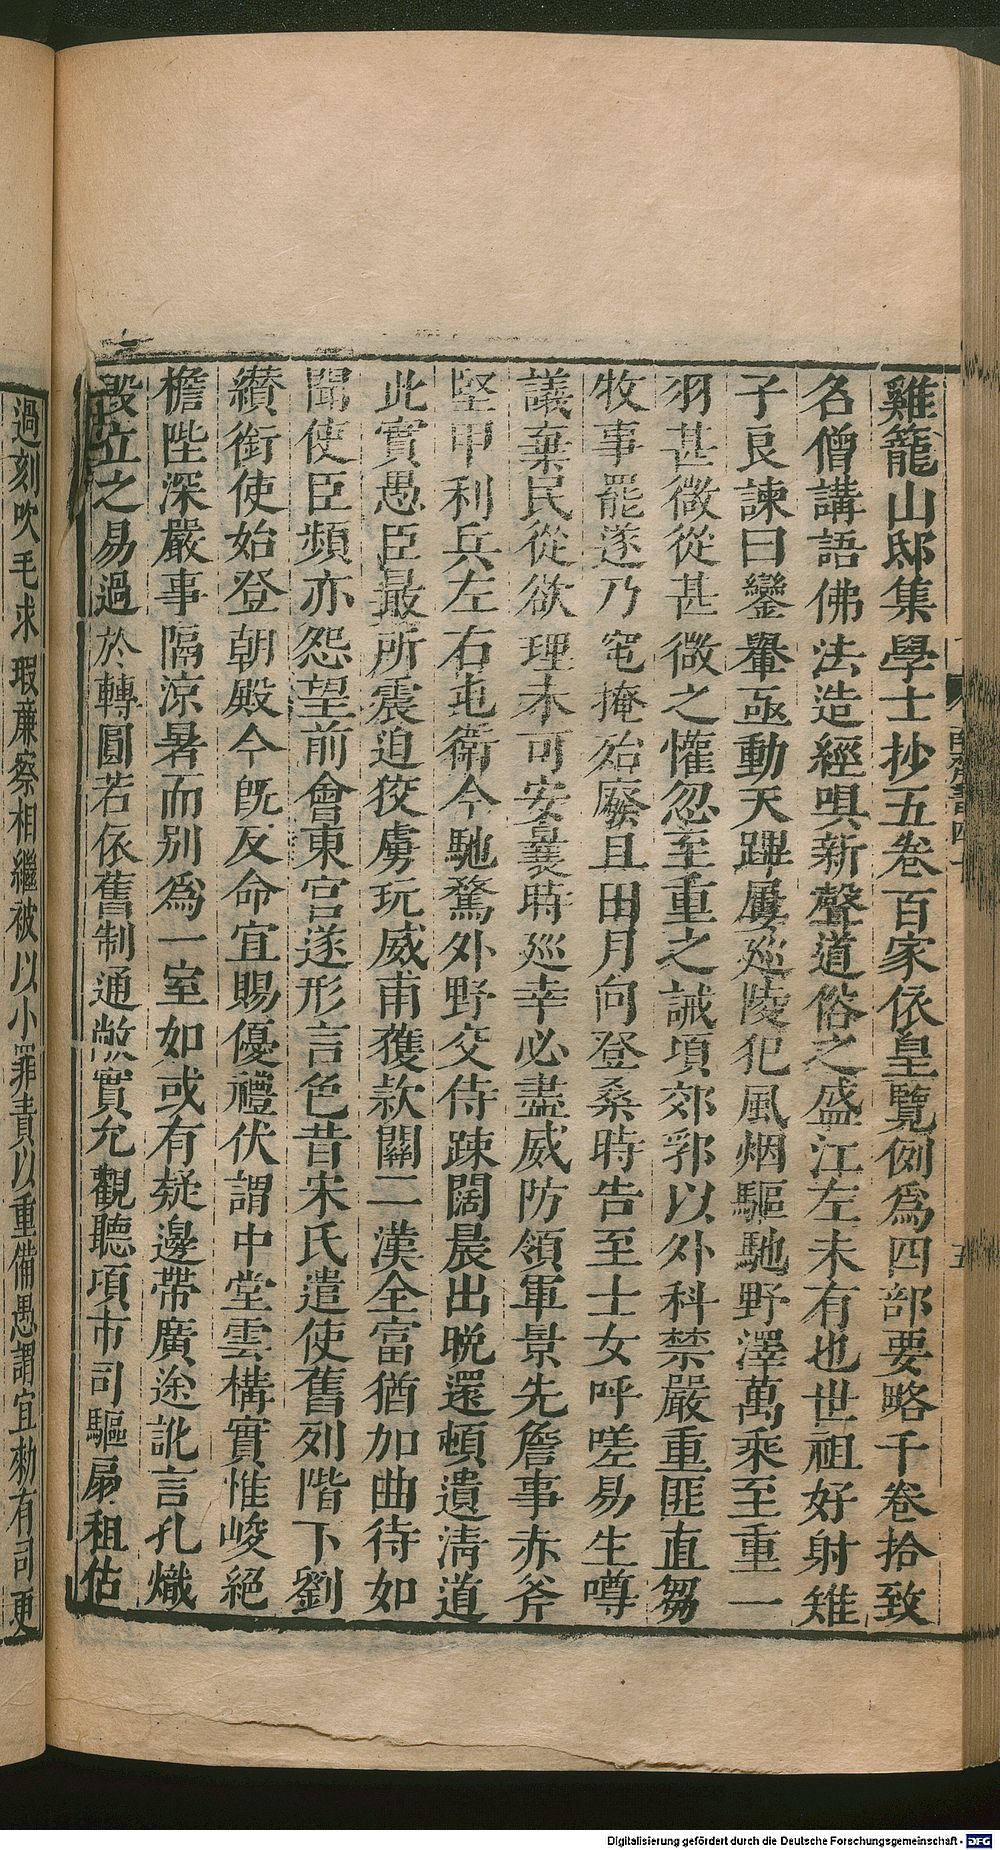 雞籠山邸集學士抄五卷百家依皇覽例爲四部要略千卷拾致
名僧講語佛法造經唄新聲道俗之盛江左未有也世祖好射雉
子良諫曰鑾轝亟動天蹕屢巡陵犯風烟驅馳野澤萬乘至重一
羽甚微從甚微之懽忽至重之誡項郊郛以外科禁嚴重匪直芻
牧事罷遂乃窀掩殆廢且田月向登桑時告至士女呼嗟易生噂
議棄民從欲理未可安曩時巡幸必盡威防領軍景先詹事赤斧
堅甲利兵左右屯衛今馳騖外野交侍踈闊晨出晚還頓遺淸道
此實愚臣最所震迫狡虜玩威甫獲款關二漢全富猶加曲待如
聞使臣頻亦怨望前會東宮遂形言色昔宋氏遣使舊列階下劉
纘銜使始登朝殿今旣反命宜賜優禮伏謂中堂雲構實惟峻絕
檐陛深嚴事隔涼暑而別爲一室如或有疑邊帶廣途訛言孔熾
毀立之易過於轉圓若依舊制通敞實允觀聽項市司驅扇租估
過刻吹毛求瑕廉察相繼被以小罪責以重備愚謂宜勑有司更
五
Digitalisierung gefördert durch die Deutsche Forschungsgemeinschaft - DFG